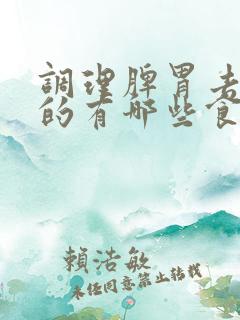 調理脾胃
的有哪些食
賴浩敏
未经同意禁止转载